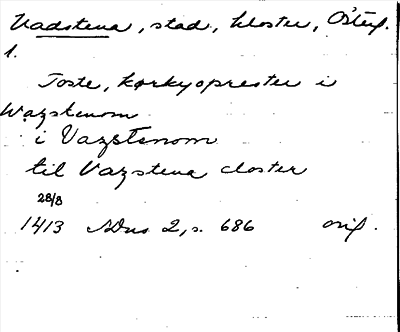 Vadstena, stad, kloster, Östergl.
1.
Toste, kørkyoprester i
Wazstenom
i Vazstenom
til Vazstena closter
28/8
1413 SDns 2, s. 686 orig.